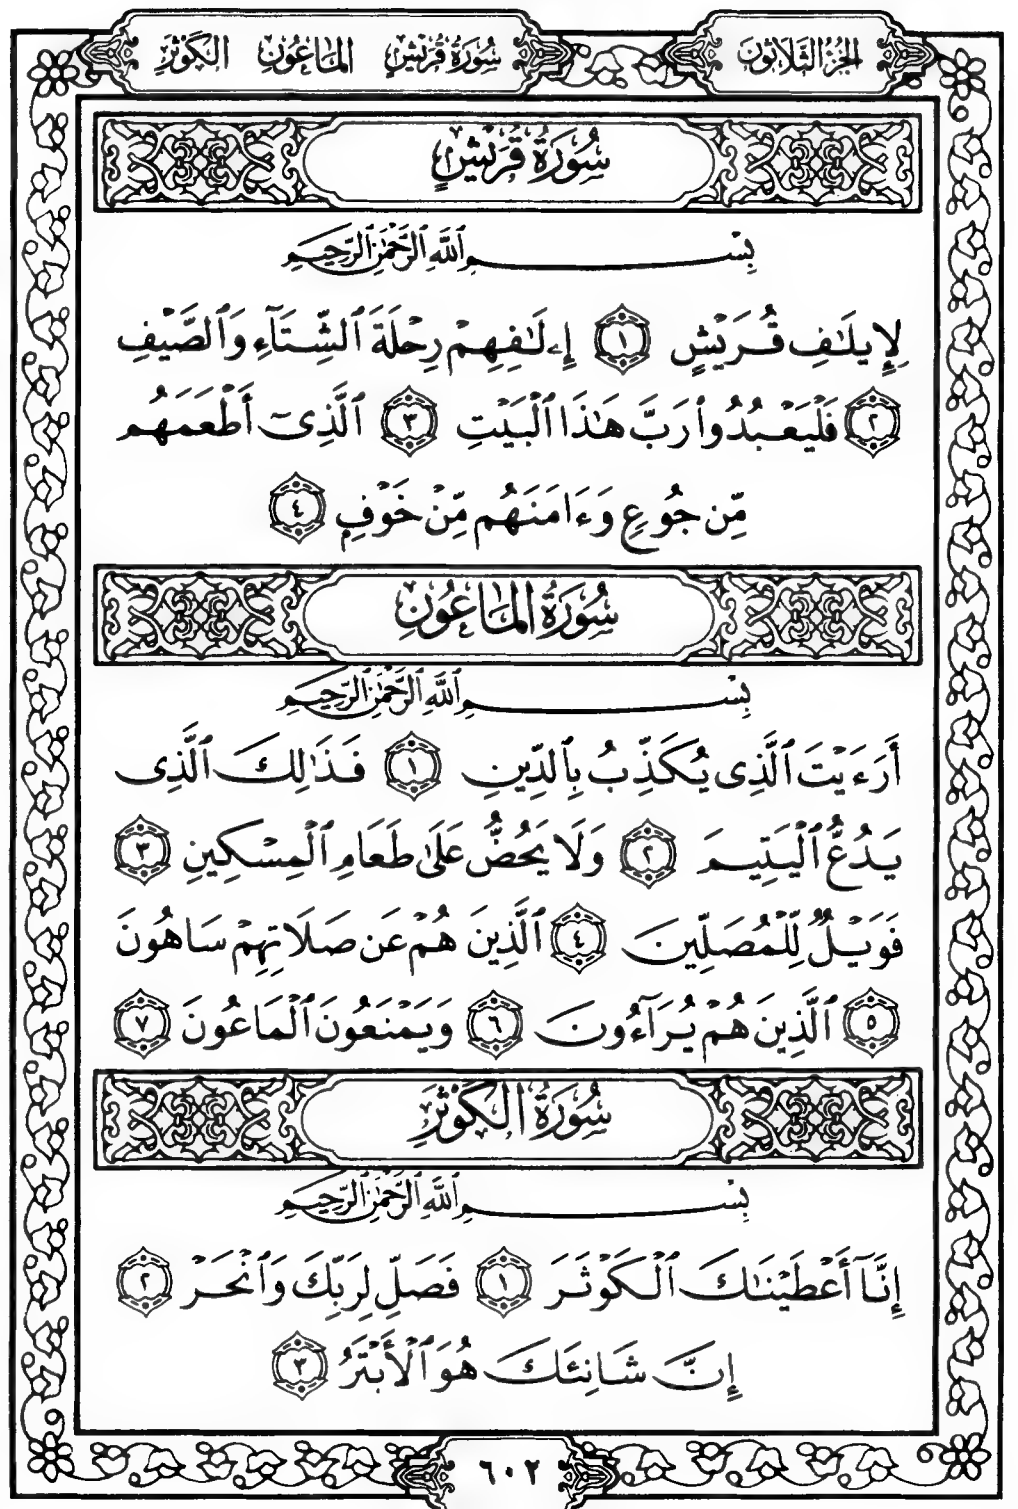 الجُزءُ الثَّلَاثُونَ
سُورَةُ قُرَيْشٍ المَاعُونِ الكَوْثَرِ
سُورَةُ قُرَيْشٍ
بِسْمِ ٱللَّهِ ٱلرَّحْمَٰنِ ٱلرَّحِيمِ
لِإِيلَٰفِ قُرَيْشٍ ١ إِۦلَٰفِهِمْ رِحْلَةَ ٱلشِّتَآءِ وَٱلصَّيْفِ
٢ فَلْيَعْبُدُوا۟ رَبَّ هَٰذَا ٱلْبَيْتِ ٣ ٱلَّذِىٓ أَطْعَمَهُم
مِّن جُوعٍ وَءَامَنَهُم مِّنْ خَوْفٍۭ ٤
سُورَةُ المَاعُونِ
بِسْمِ ٱللَّهِ ٱلرَّحْمَٰنِ ٱلرَّحِيمِ
أَرَءَيْتَ ٱلَّذِى يُكَذِّبُ بِٱلدِّينِ ١ فَذَٰلِكَ ٱلَّذِى
يَدُعُّ ٱلْيَتِيمَ ٢ وَلَا يَحُضُّ عَلَىٰ طَعَامِ ٱلْمِسْكِينِ ٣
فَوَيْلٌ لِّلْمُصَلِّينَ ٤ ٱلَّذِينَ هُمْ عَن صَلَاتِهِمْ سَاهُونَ
٥ ٱلَّذِينَ هُمْ يُرَآءُونَ ٦ وَيَمْنَعُونَ ٱلْمَاعُونَ ٧
سُورَةُ الكَوْثَرِ
بِسْمِ ٱللَّهِ ٱلرَّحْمَٰنِ ٱلرَّحِيمِ
إِنَّآ أَعْطَيْنَٰكَ ٱلْكَوْثَرَ ١ فَصَلِّ لِرَبِّكَ وَٱنْحَرْ ٢
إِنَّ شَانِئَكَ هُوَ ٱلْأَبْتَرُ ٣
٦٠٢